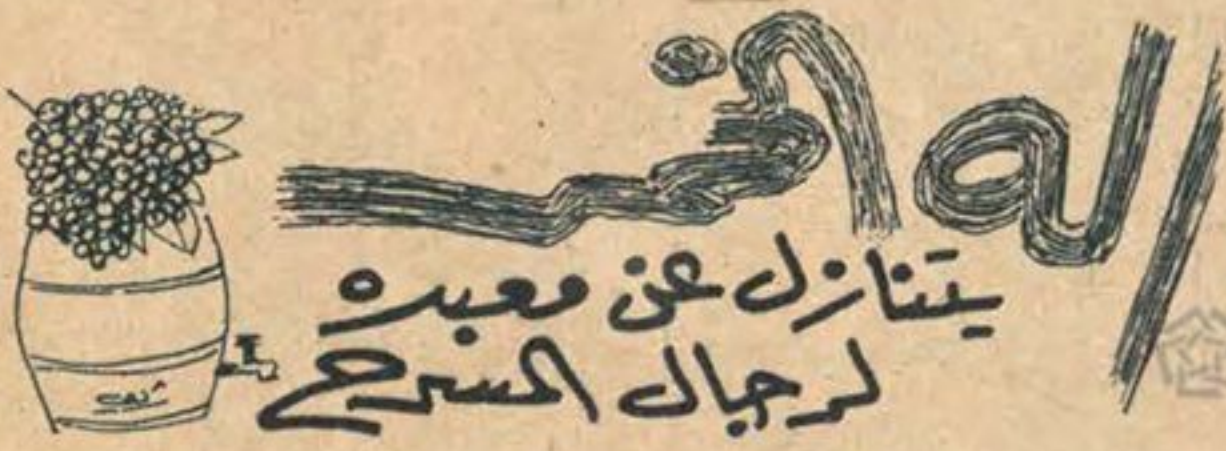 اله الخمر
يتنازل عن معبده
لرجال المسرح